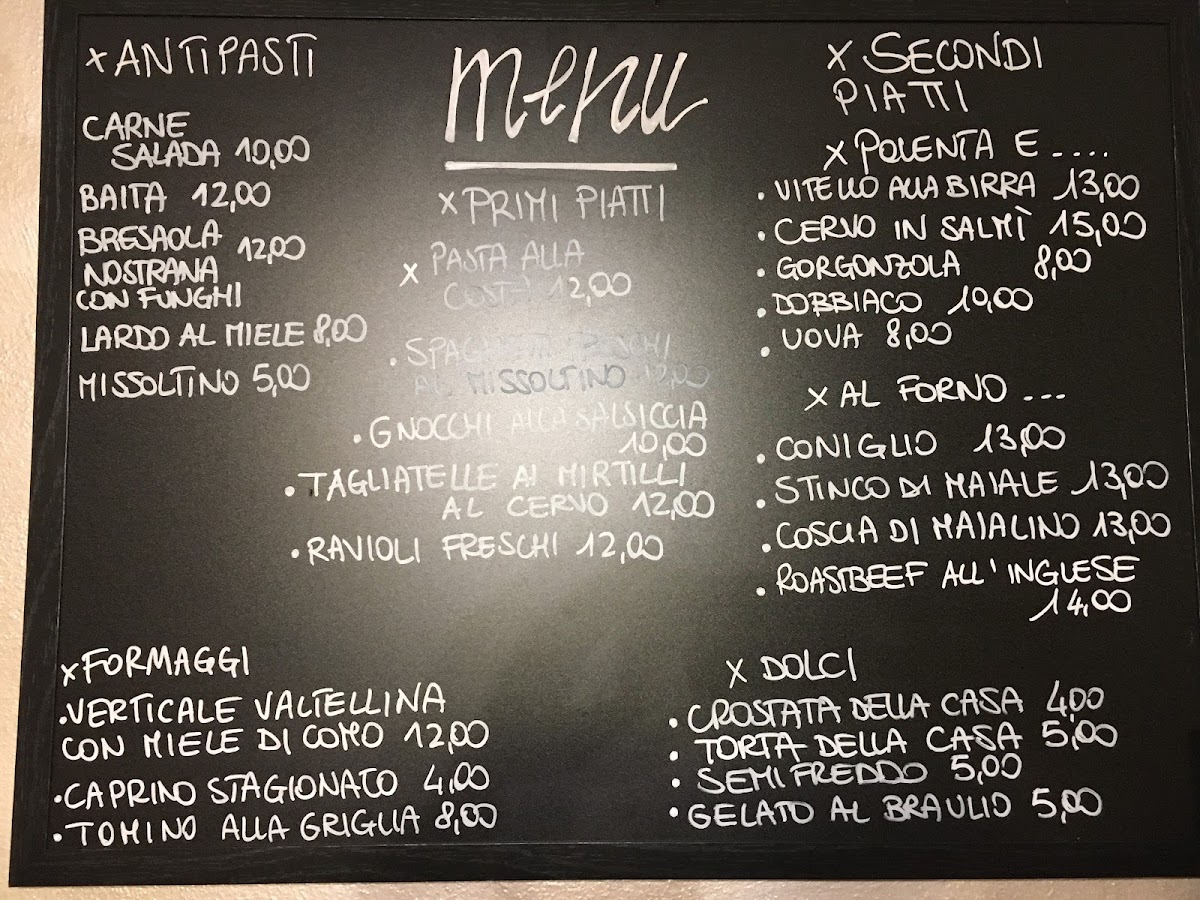 menu
x ANTIPASTI
CARNE
SALADA 10,00
BAITA 12,00
BRESAOLA 12,00
NOSTRANA
CON FUNGHI
LARDO AL MIELE 8,00
MISSOLTINO 5,00
x PRIMI PIATTI
x PASTA ALLA
12,00
. SPAGHETTI FRESCHI
AL MISSOLTINO 12,00
. GNOCCHI ALLA SALSICCIA
10,00
. TAGLIATELLE AI MIRTILLI
AL CERVO 12,00
. RAVIOLI FRESCHI 12,00
x SECONDI
PIATTI
x POLENTA E ....
. VITELLO ALLA BIRRA 13,00
. CERVO IN SALMÌ 15,00
. GORGONZOLA 8,00
. DOBBIACO 10,00
. UOVA 8,00
x AL FORNO ...
. CONIGLIO 13,00
. STINCO DI MAIALE 13,00
. COSCIA DI MAIALINO 13,00
. ROASTBEEF ALL'INGLESE
14,00
x FORMAGGI
. VERTICALE VALTELLINA
CON MIELE DI COMO 12,00
. CAPRINO STAGIONATO 4,00
. TOMINO ALLA GRIGLIA 8,00
x DOLCI
. CROSTATA DELLA CASA 4,00
. TORTA DELLA CASA 5,00
. SEMIFREDDO 5,00
. GELATO AL BRAULIO 5,00